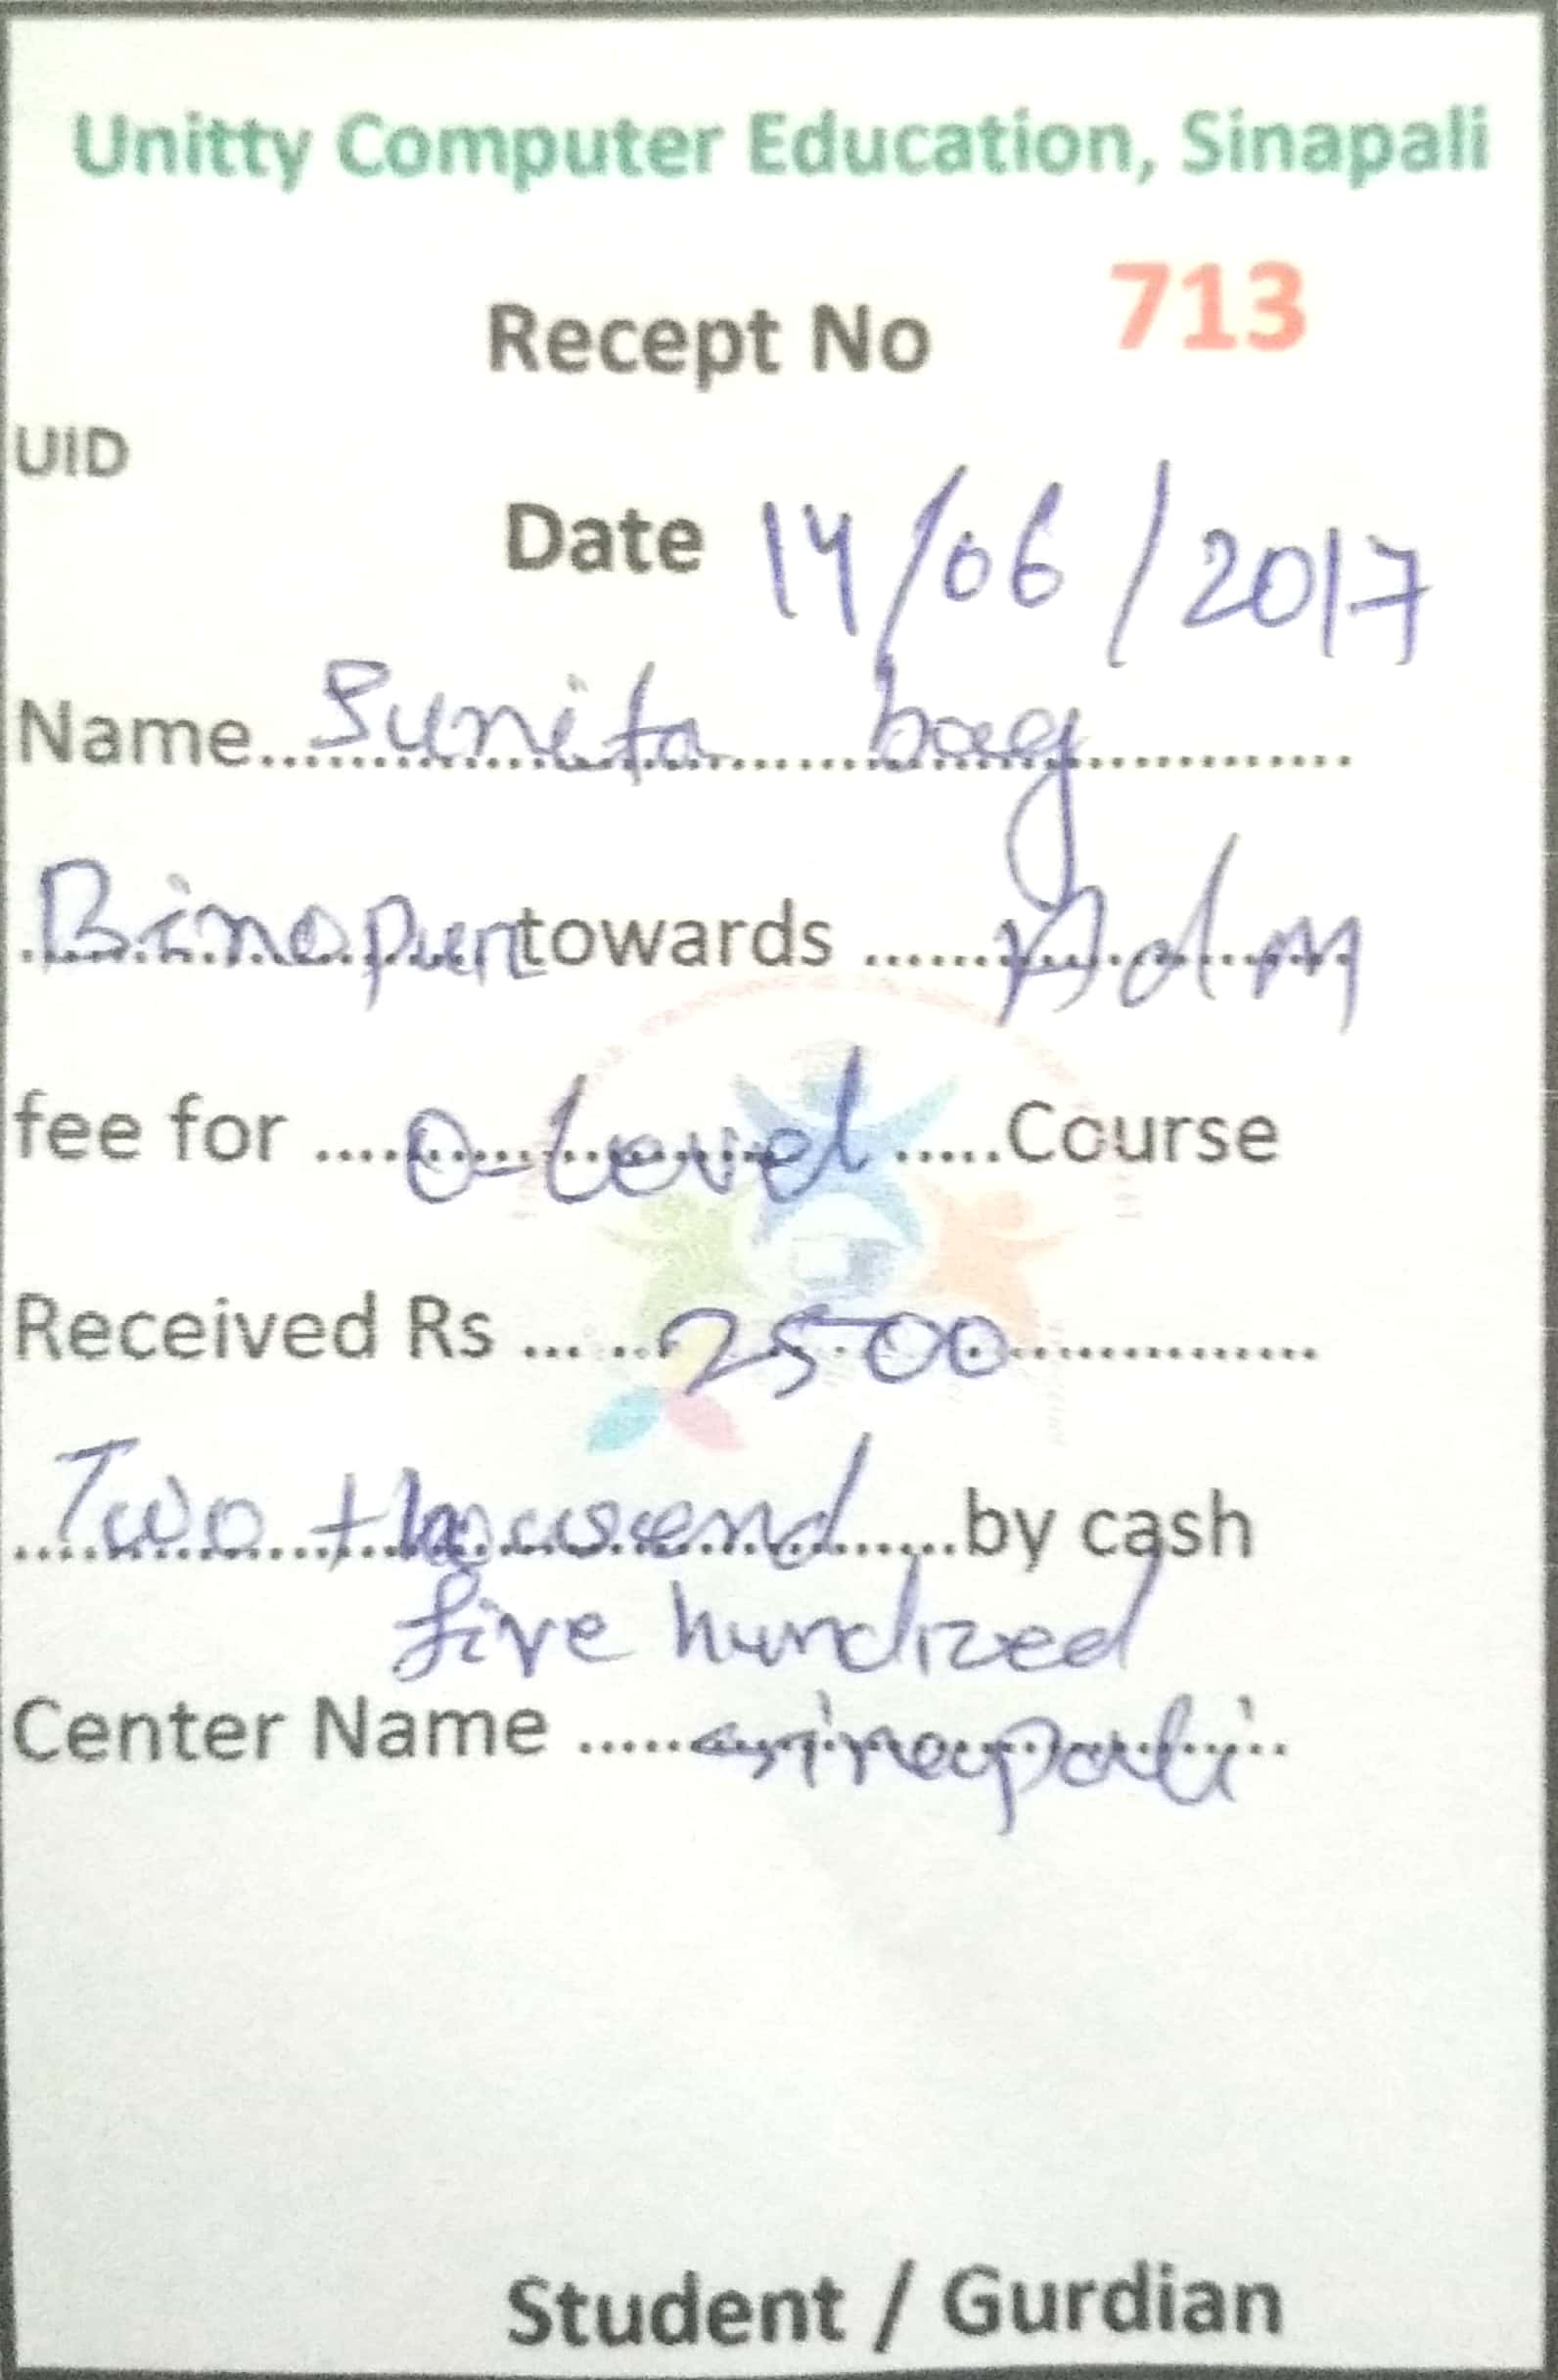 Unitty Computer Education, Sinapali
Recept No 713
UID
Date 14/06/2017
Name Sunita bag
Binapur towards Adm
fee for O-Level Course
Received Rs 2500
Two thousend by cash
five hundred
Center Name sinapali
Student / Gurdian